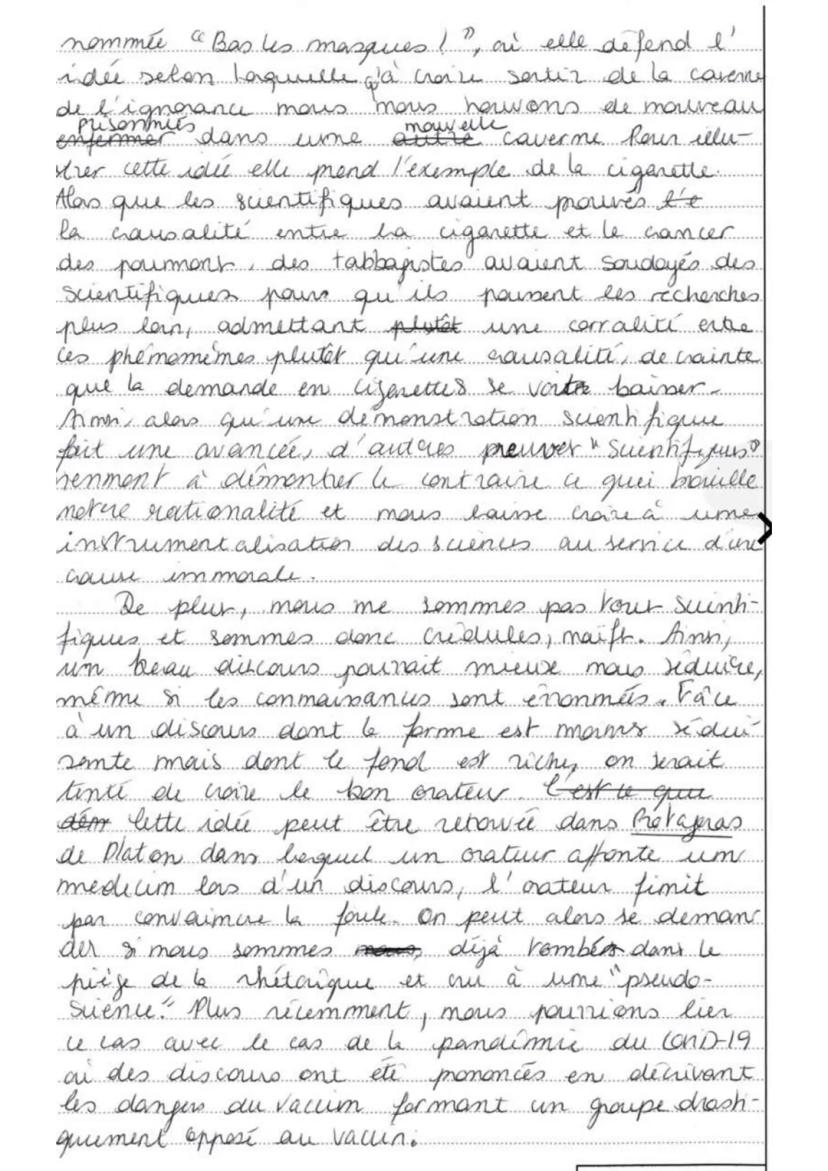 nommée "Bas les masques !", où elle défend l'
idée selon laquelle, à croire sortir de la caverne
de l'ignorance nous nous trouvons de nouveau
prisonniés nouvelle
enfermer dans une autre caverne Pour illu-
strer cette idée elle prend l'exemple de la cigarette.
Alors que les scientifiques avaient prouvés l'e
la causalité entre la cigarette et le cancer
des poumont, des tabbagistes avaient soudoyés des
scientifiques pours qu'ils poussent les recherches
plus loin, admettant plutôt une corralité entre
ces phénomèmes plutôt qu'une causalité, de crainte
que la demande en cigarettes se voit baisser.
Ainsi, alors qu'une démonstration scientifique
fait une avancée, d'autres preuves "scientifiques"
viennent à démontrer le contraire ce quei brouille
notre rationalité et nous laisse croire à une
instrumentalisation des sciences au service d'une
cause immorale.
De plus, nous ne sommes pas tous scienti-
fiques et sommes donc crédules, naïfs. Ainsi,
un beau discours pourrait mieux nous séduire,
même si les connaissances sont érronnées. Fâce
à un discours dont la forme est moins sédui-
sante mais dont le fond est riche, on serait
tenté de croire le bon orateur. C'est ce que
dém Cette idée peut être retrouvée dans Protagoras
de Platon dans lequel un orateur affronte un
médecin lors d'un discours, l'orateur finit
par convaincre la foule. On peut alors se deman
der si nous sommes déjà tombés dans le
piège de la rhétorique et cru à une "pseudo-
science." Plus récemment, nous pourrions lier
ce cas avec le cas de la pandémie du COVID-19
où des discours ont été prononcés en décrivant
les dangers du vaccin formant un groupe drasti-
quement opposé au vaccin.